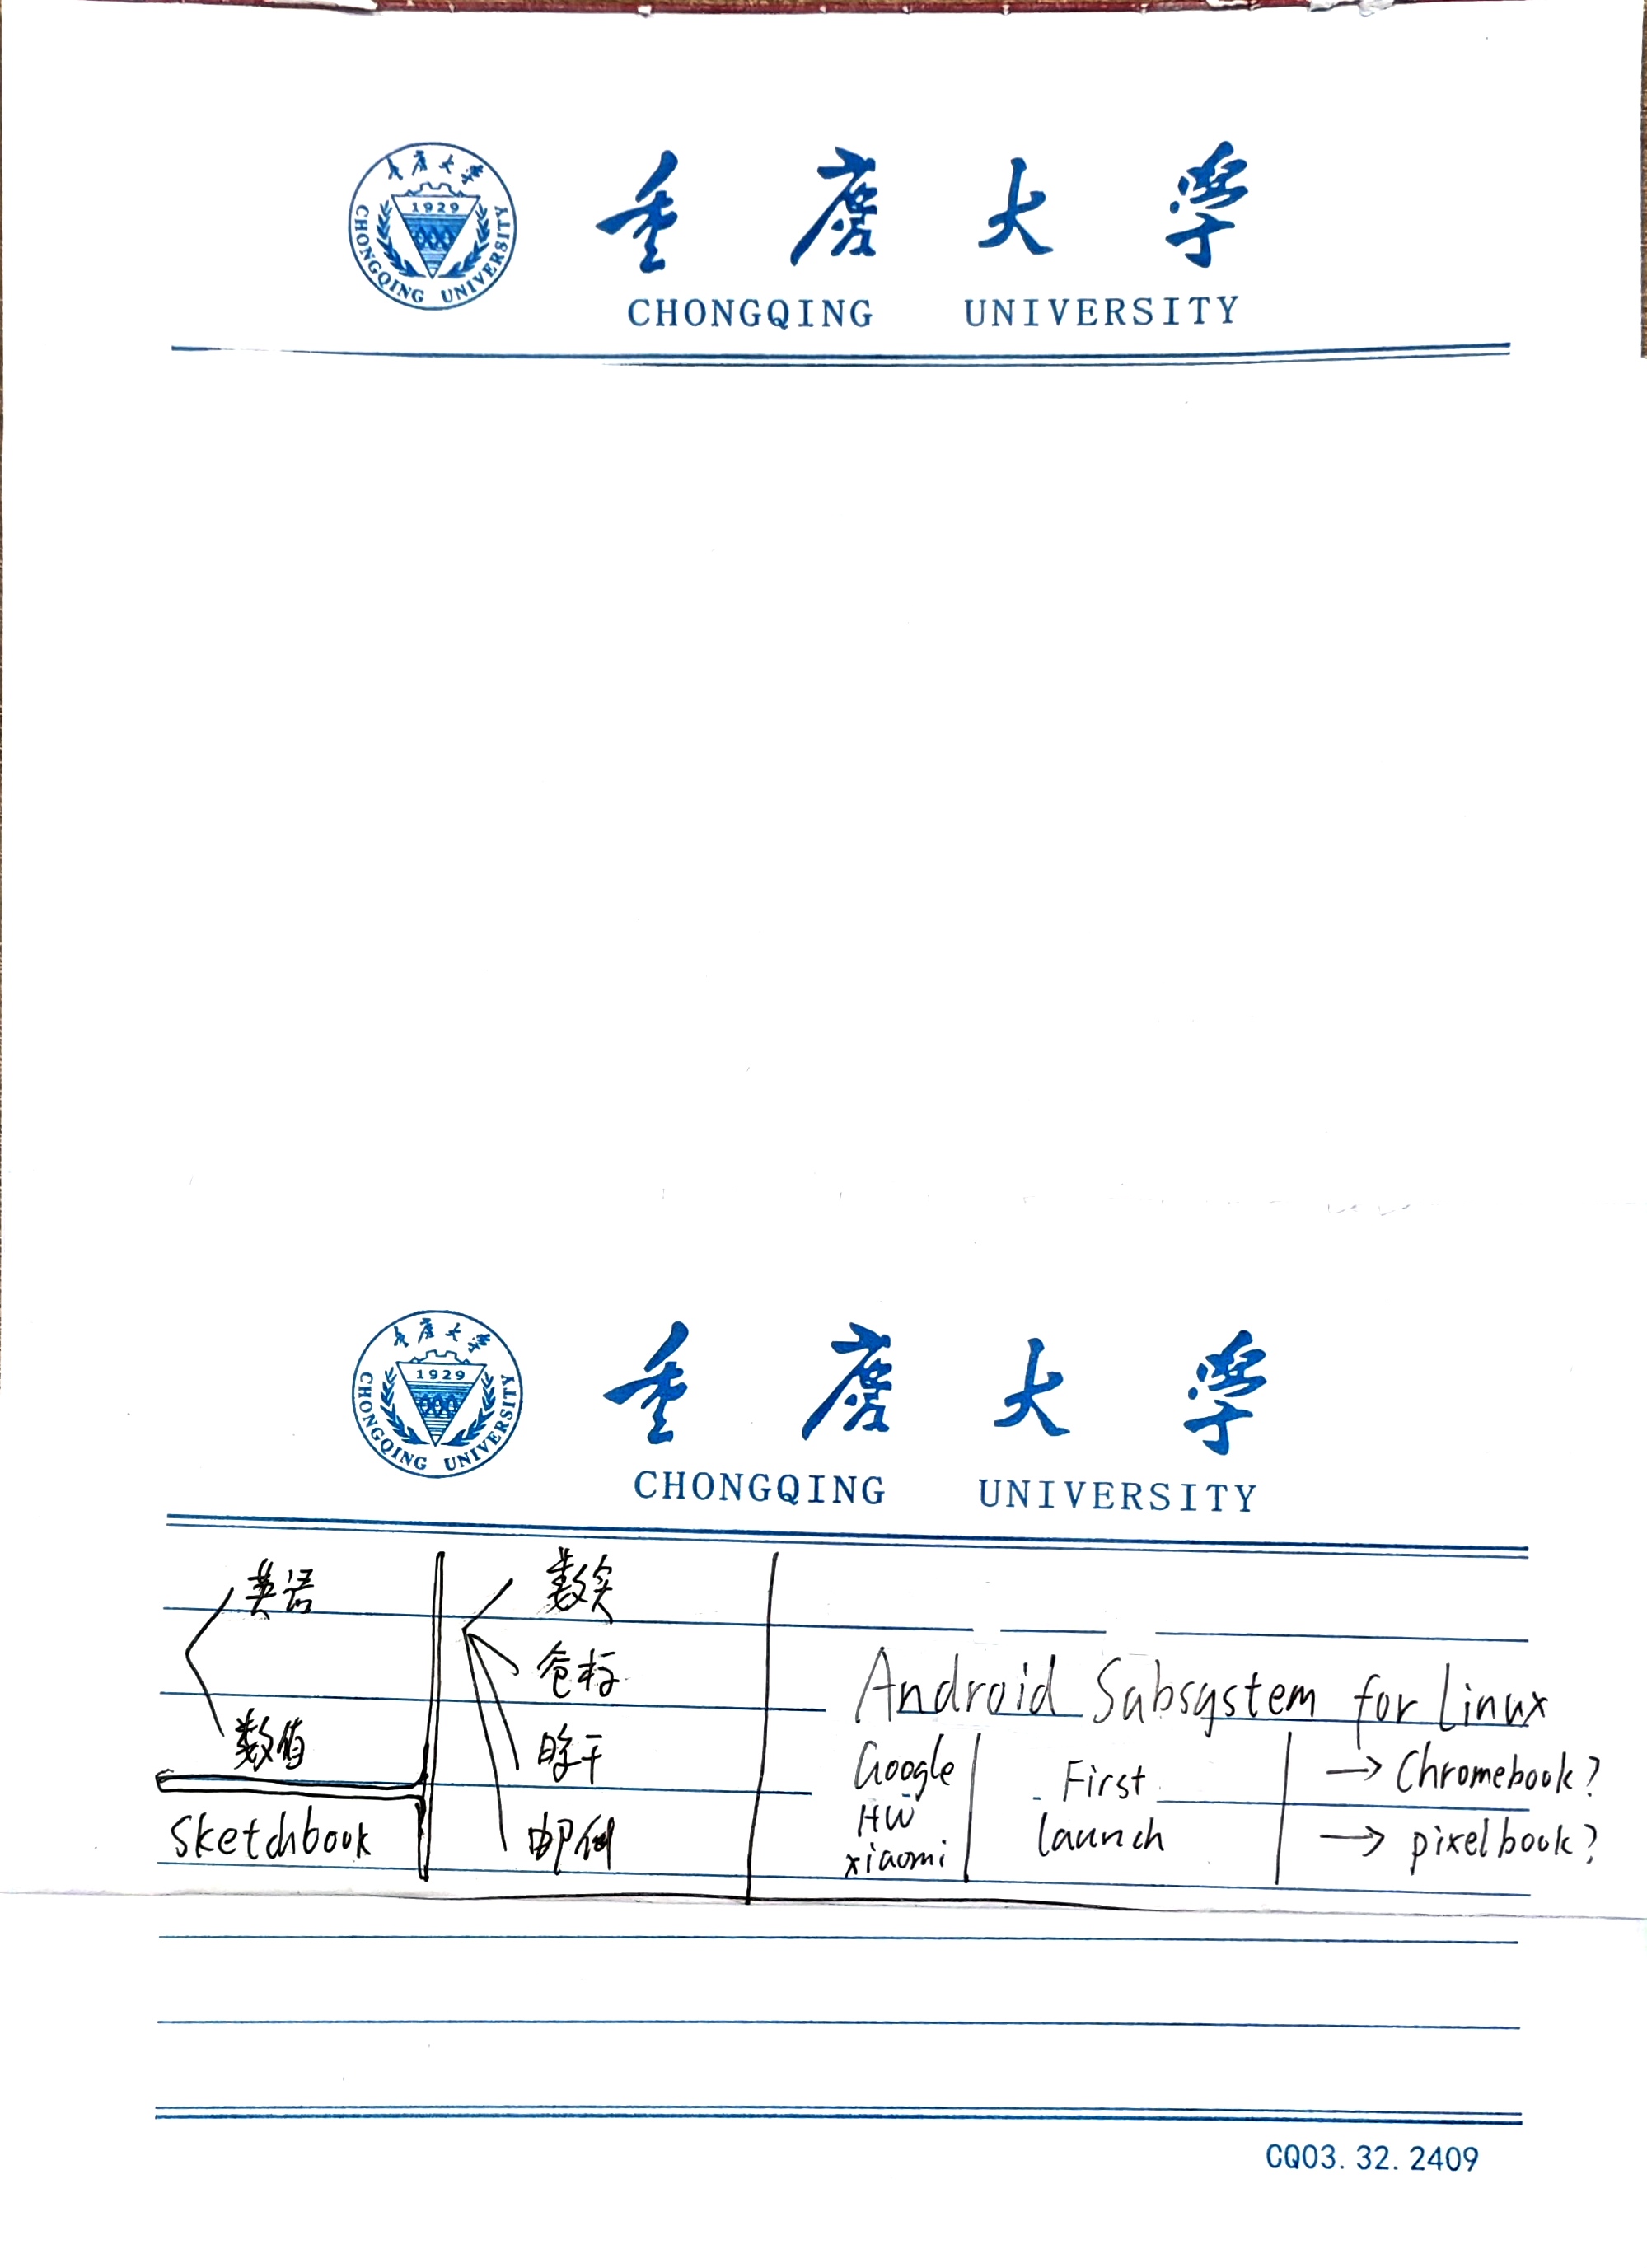 重庆大学
1929
CHONGQING UNIVERSITY
重庆大学
CHONGQING UNIVERSITY
重庆大学
1929
CHONGQING UNIVERSITY
重庆大学
CHONGQING UNIVERSITY
英语
数值
Sketchbook
数实
Android Subsystem for Linux
Google
HW
xiaomi
First
launch
→ Chromebook?
→ pixelbook?
CQ03.32.2409